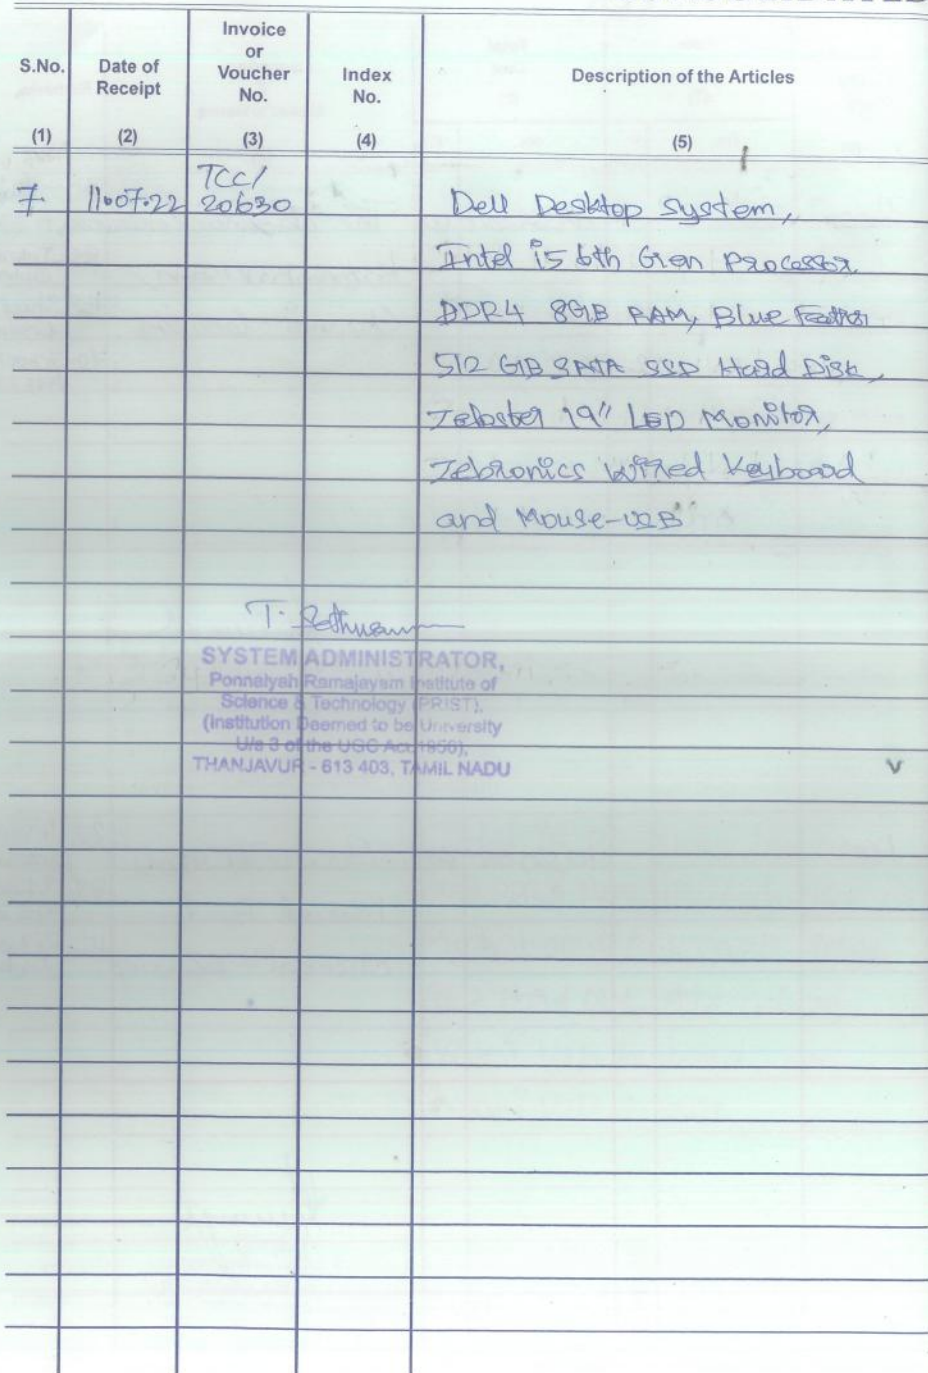 S.No.
Date of
Receipt
Invoice
or
Voucher
No.
Index
No.
Description of the Articles
(1) (2) (3) (4) (5)
TCC/
7. 11.07.22 20630 Dell Desktop System,
Intel i5 6th Gen Processor
DDR4 8GB RAM, Blue Feather
512 GB SATA SSD Hard Disk,
Zebster 19" LED Monitor,
Zebronics wired Keyboard
and Mouse-USB
T.
SYSTEM ADMINISTRATOR,
Ponnaiyah Ramajayam Institute of
Science & Technology (PRIST),
(Institution Deemed to be University
U/s 3 of the UGC Act 1956),
THANJAVUR - 613 403, TAMIL NADU